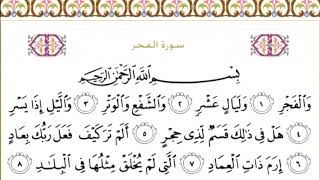 سورة الفجر
بِسْمِ ٱللَّهِ ٱلرَّحْمَٰنِ ٱلرَّحِيمِ
وَالْفَجْرِ ١ وَلَيَالٍ عَشْرٍ ٢ وَالشَّفْعِ وَالْوَتْرِ ٣ وَالَّيْلِ إِذَا يَسْرِ
٤ هَلْ فِي ذَٰلِكَ قَسَمٌ لِّذِي حِجْرٍ ٥ أَلَمْ تَرَ كَيْفَ فَعَلَ رَبُّكَ بِعَادٍ
٦ إِرَمَ ذَاتِ الْعِمَادِ ٧ الَّتِي لَمْ يُخْلَقْ مِثْلُهَا فِي الْبِلَٰدِ ٨